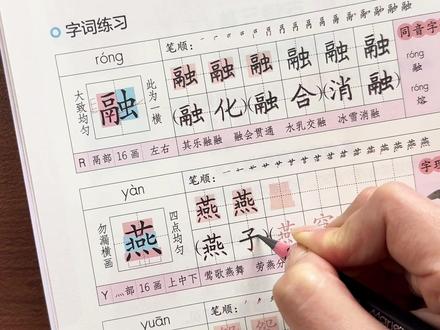 字词练习
róng
笔顺:
同音字
大致均匀
融
此为一横
融融融融融融
róng
融
(融化)(融合)(消融)
róng
熔
R 鬲部 16画 左右 其乐融融 融会贯通 水乳交融 冰雪消融
yàn
笔顺:
字理
勿漏横画
燕
四点均匀
燕燕
(燕子)(燕窝
Y 灬部 16画 上中下 莺歌燕舞 劳燕分
yuān
笔顺: